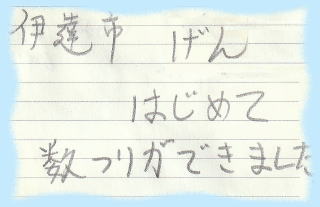 伊達市 げん
はじめて
数つりができました